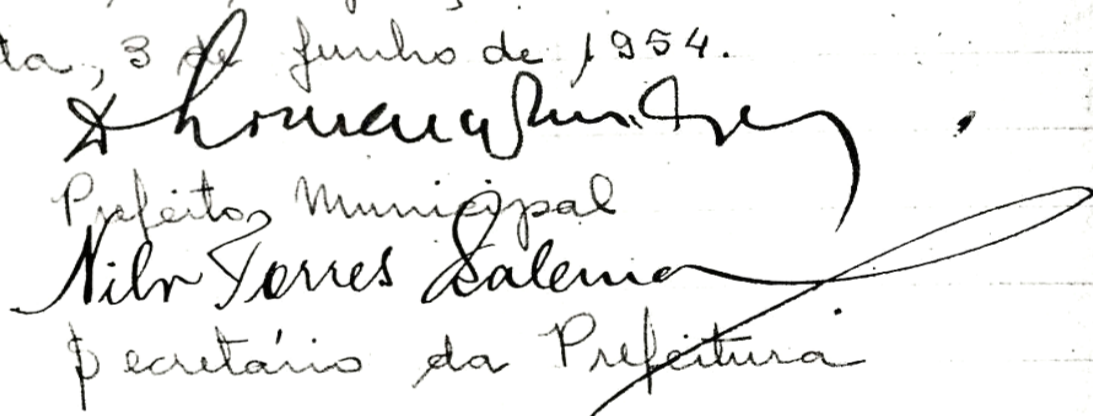 ta, 3 de Junho de 1954.
Prefeito Municipal
Nilo Torres Salema
Secretário da Prefeitura